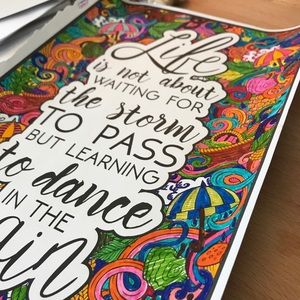 Life
is not about
WAITING FOR
the storm
TO PASS
BUT LEARNING
to dance
IN THE
ain